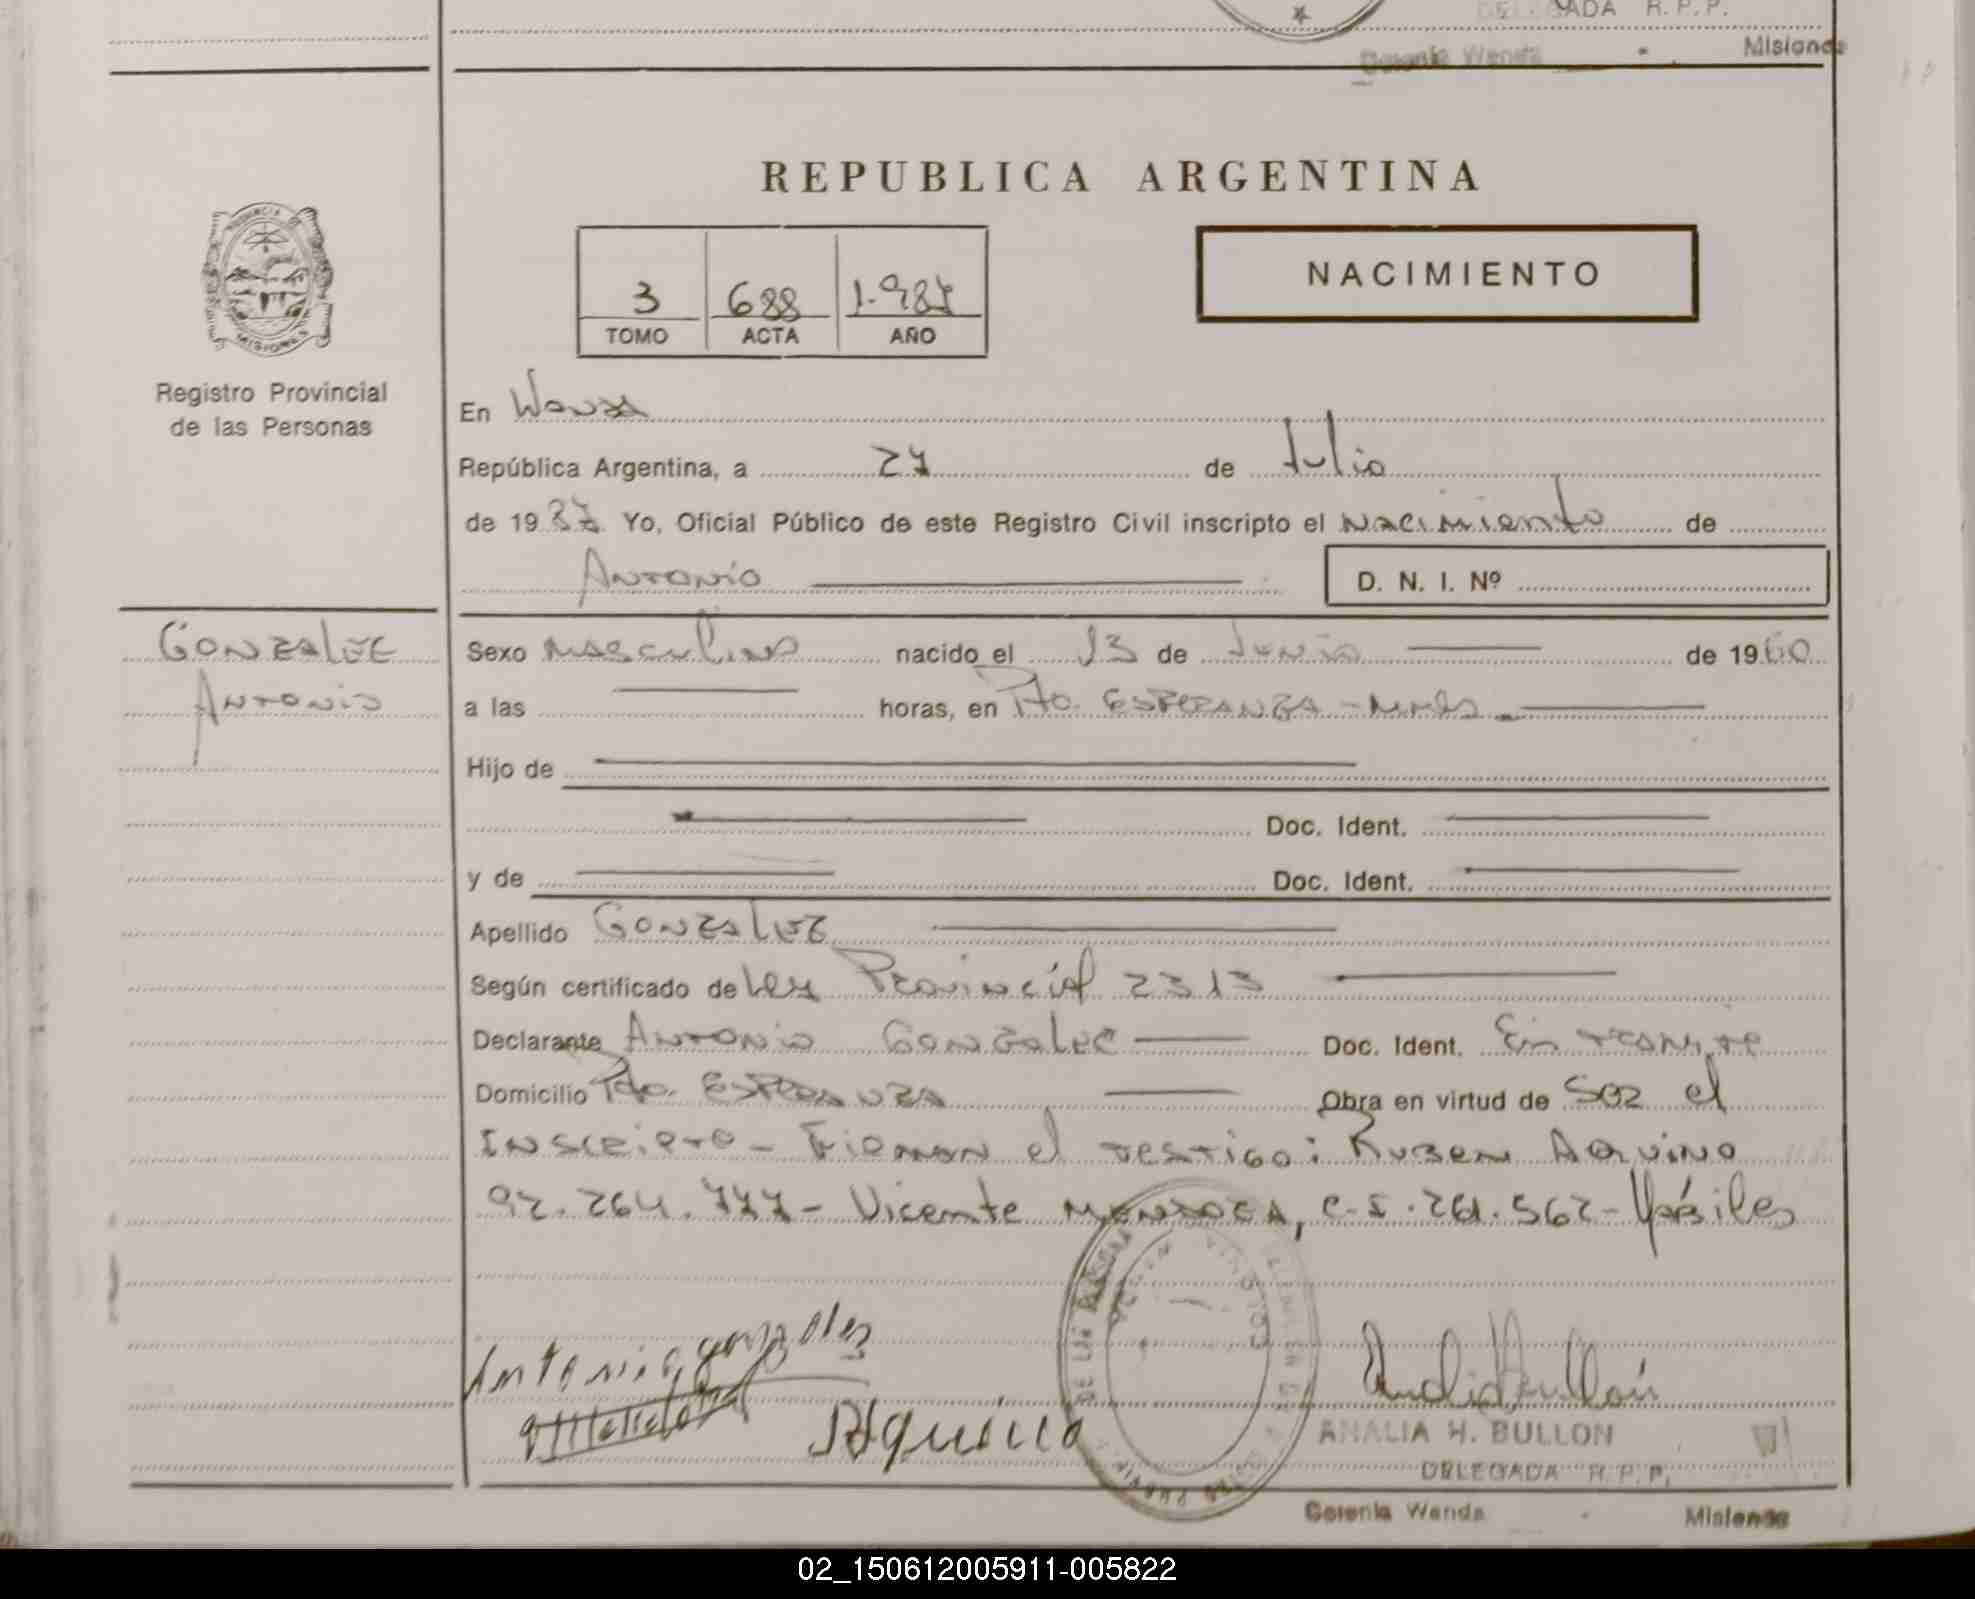 DELEGADA R. P. P.
Colonia Wanda Misiones
REPUBLICA ARGENTINA
PROVINCIA DE
MISIONES
3 688 1.987
TOMO ACTA AÑO
NACIMIENTO
Registro Provincial
de las Personas
En Wanda
República Argentina, a 27 de Julio
de 1987 Yo, Oficial Público de este Registro Civil inscripto el Nacimiento de
Antonio D. N. I. Nº
GONZALEZ
Antonio
Sexo Masculino nacido el 13 de Junio de 1960
a las horas, en Pto. ESPERANZA - Mnes
Hijo de
Doc. Ident.
y de Doc. Ident.
Apellido GONZALEZ
Según certificado de Ley Provincial 2313
Declarante Antonio GONZALEZ Doc. Ident. En tramite
Domicilio Pto. ESPERANZA Obra en virtud de SER el
INSCRIPTO - Firman el testigo: Ruben Aquino
92.264.777 - Vicente MENDOZA, C.I. 261.562 - Hábiles
Antonio gonzales
Aquino
ANALIA H. BULLON
DELEGADA R. P. P.
Colonia Wanda Misiones
02_150612005911-005822